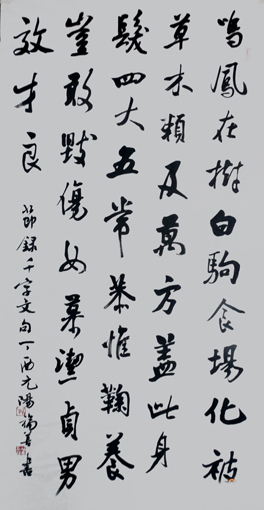 鳴鳳在樹白駒食場化被
草木賴及萬方蓋此身
髮四大五常恭惟鞠養
豈敢毀傷女慕潔貞男
效才良
節錄千字文句丁酉元陽書